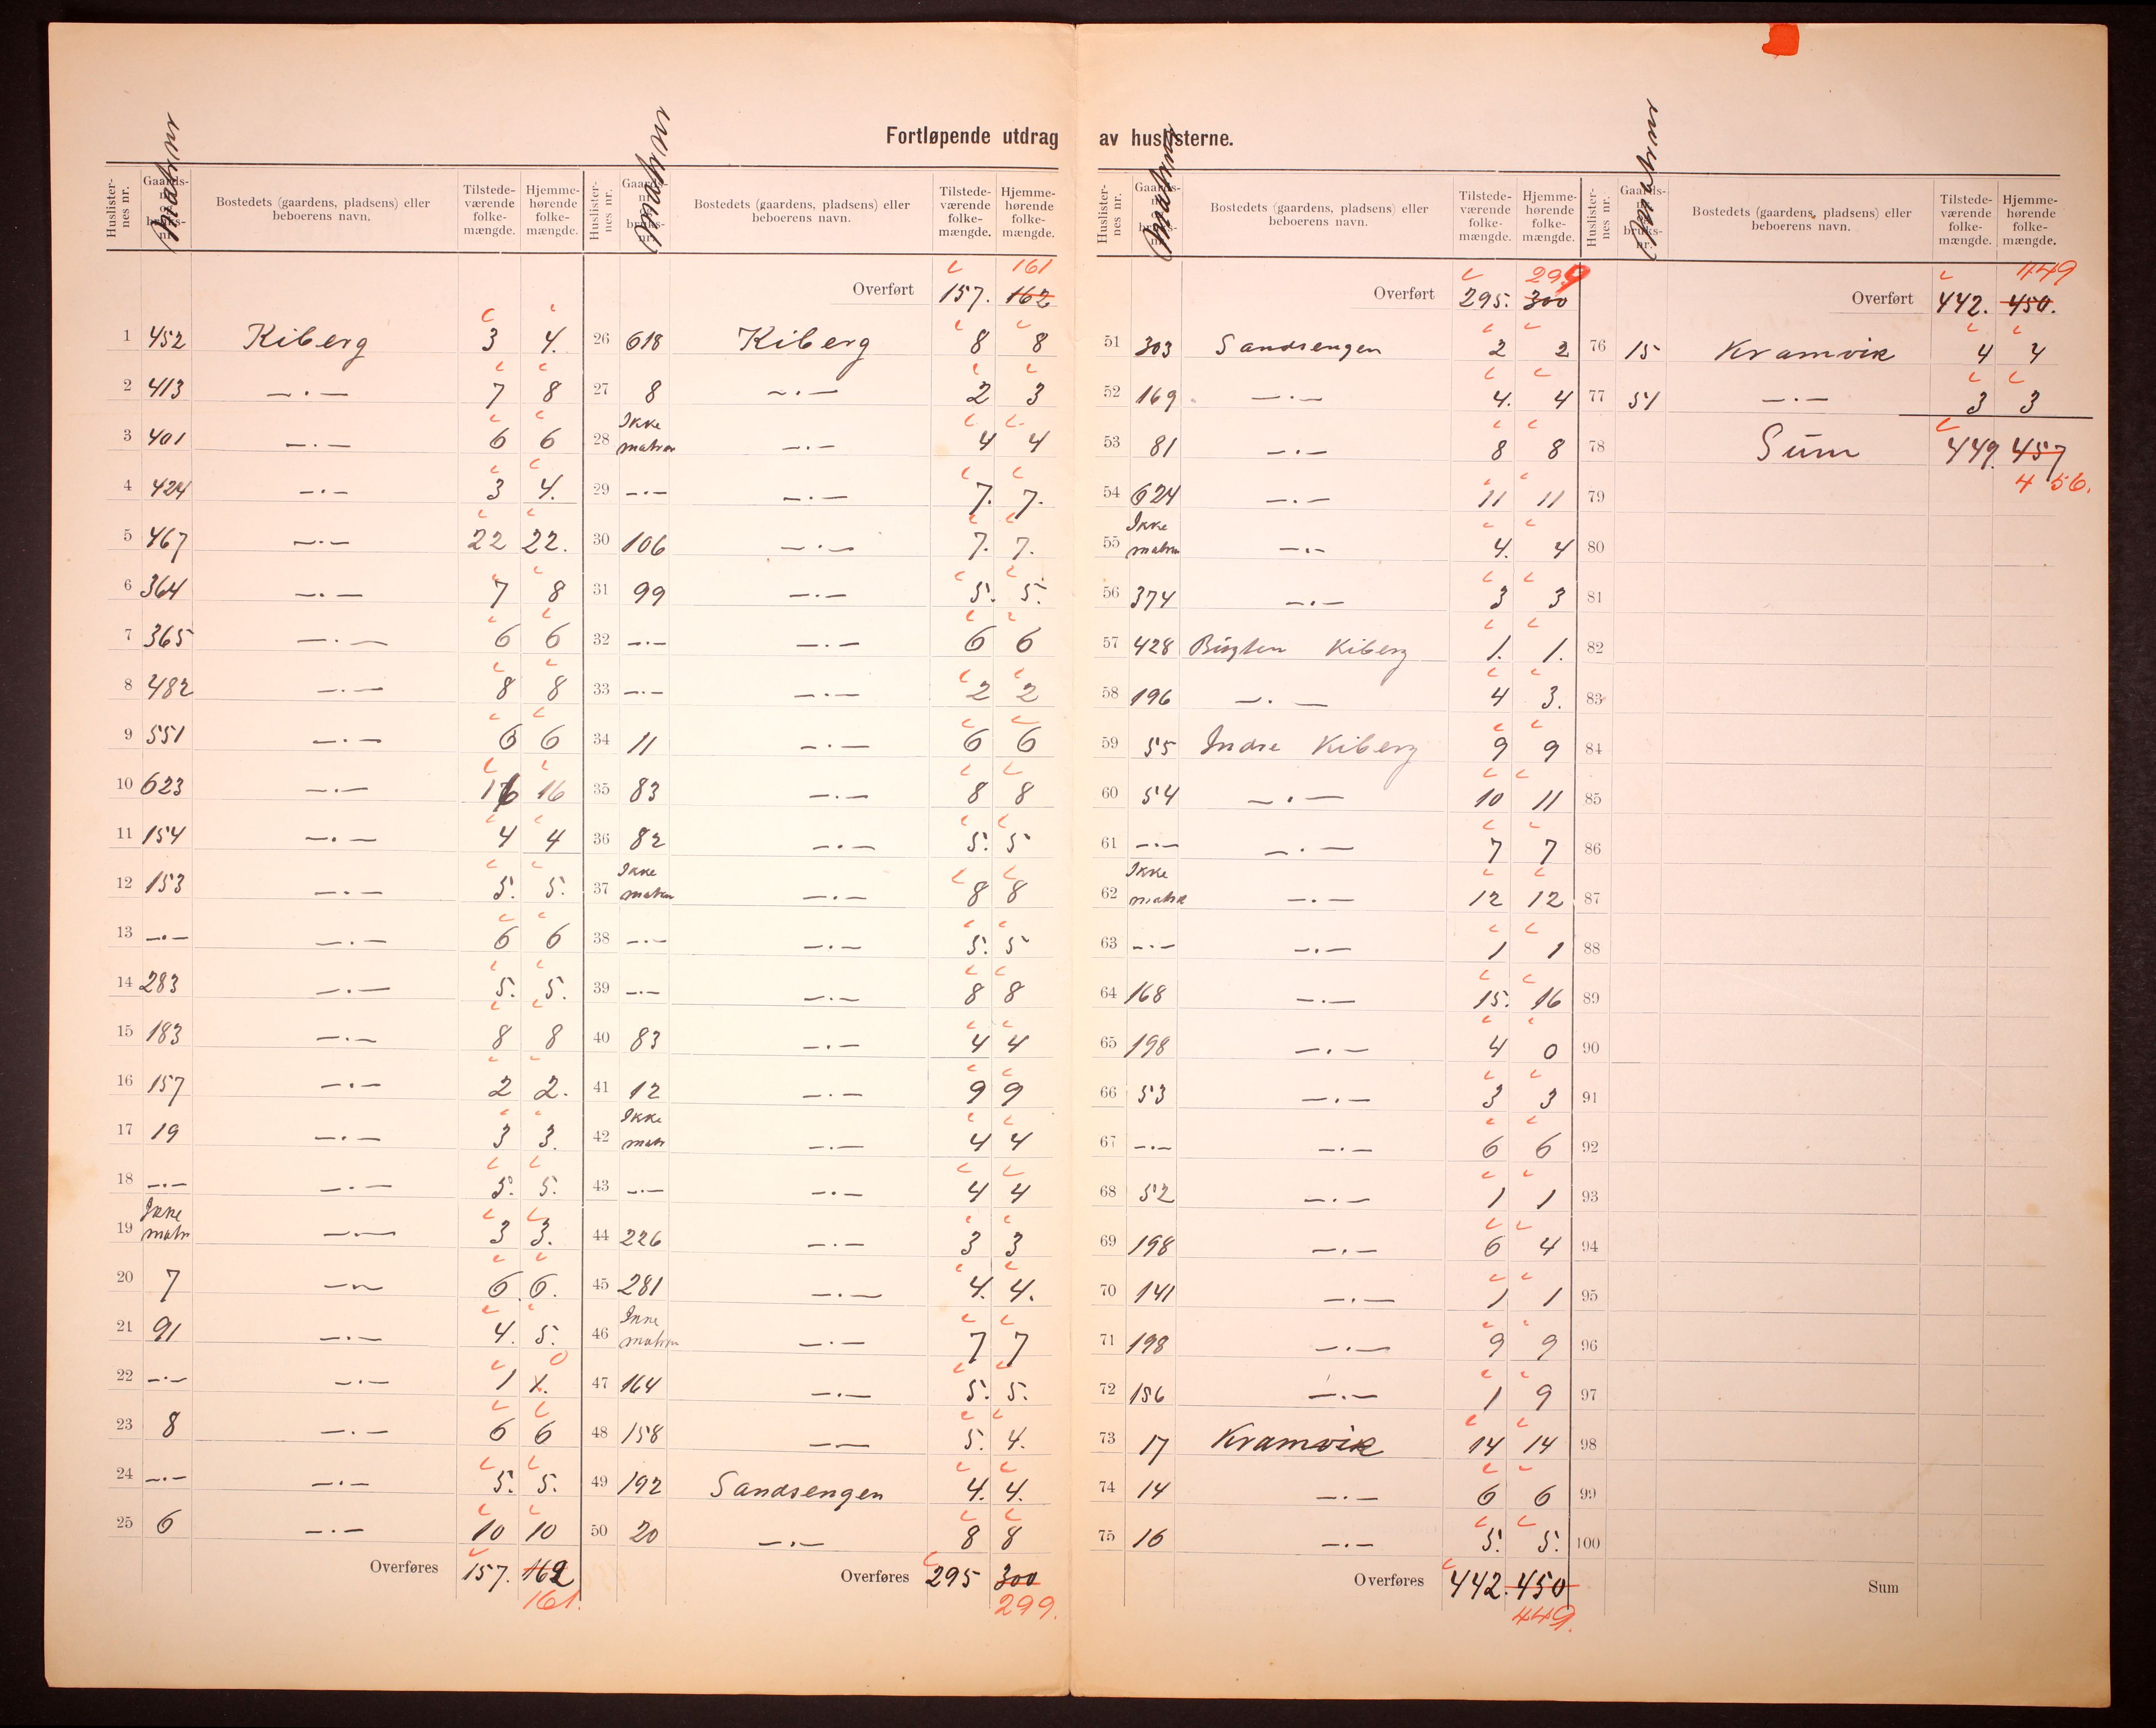 Fortløpende utdrag av huslisterne.
matr nr matr nr matr nr matr nr
Huslisternes nr. Gaards- nr. bruks- nr. Bostedets (gaardens, pladsens) eller beboerens navn. Tilstedeværende folkemængde. Hjemmehørende folkemængde.
1 452 Kiberg 3 4.
2 413 —.— 7 8
3 401 —.— 6 6
4 424 —.— 3 4.
5 467 —.— 22 22.
6 364 —.— 7 8
7 365 —.— 6 6
8 482 —.— 8 8
9 551 —.— 6 6
10 623 —.— 16 16
11 154 —.— 4 4
12 153 —.— 5. 5.
13 —.— —.— 6 6
14 283 —.— 5. 5.
15 183 —.— 8 8
16 157 —.— 2 2.
17 19 —.— 3 3.
18 —.— —.— 5. 5.
19 Ikke matr —.— 3 3.
20 7 —.— 6 6.
21 91 —.— 4. 5.
22 —.— —.— 1 1. 0
23 8 —.— 6 6
24 —.— —.— 5. 5.
25 6 —.— 10 10
Overføres 157. 162
161.
Huslisternes nr. Gaards- nr. bruks- nr. Bostedets (gaardens, pladsens) eller beboerens navn. Tilstedeværende folkemængde. Hjemmehørende folkemængde.
161
Overført 157. 162
26 618 Kiberg 8 8
27 8 —.— 2 3
28 Ikke matrn —.— 4 4
29 —.— —.— 7. 7.
30 106 —.— 7. 7.
31 99 —.— 5. 5.
32 —.— —.— 6 6
33 —.— —.— 2 2
34 11 —.— 6 6
35 83 —.— 8 8
36 82 —.— 5. 5
37 Ikke matrn —.— 8 8
38 —.— —.— 5. 5
39 —.— —.— 8 8
40 83 —.— 4 4
41 12 —.— 9 9
42 Ikke matr —.— 4 4
43 —.— —.— 4 4
44 226 —.— 3 3
45 281 —.— 4. 4.
46 Ikke matrn —.— 7 7
47 164 —.— 5. 5.
48 158 —— 5. 4.
49 192 Sandsengen 4. 4.
50 20 —.— 8 8
Overføres 295 300
299.
Huslisternes nr. Gaards- nr. bruks- nr. Bostedets (gaardens, pladsens) eller beboerens navn. Tilstedeværende folkemængde. Hjemmehørende folkemængde.
299
Overført 295. 300
51 303 Sandsengen 2 2
52 169 —.— 4. 4
53 81 —.— 8 8
54 624 —.— 11 11
55 Ikke matrn —.— 4. 4
56 374 —.— 3 3
57 428 Bugten Kiberg 1. 1.
58 196 —.— 4 3.
59 55 Indre Kiberg 9 9
60 54 —.— 10 11
61 —.— —.— 7 7
62 Ikke matr —.— 12 12
63 —.— —.— 1 1
64 168 —.— 15. 16
65 198 —.— 4 0
66 53 —.— 3 3
67 —.— —.— 6 6
68 52 —.— 1 1
69 198 —.— 6 4
70 141 —.— 1 1
71 198 —.— 9 9
72 156 —.— 1 9
73 17 Kramvik 14 14
74 14 —.— 6 6
75 16 —.— 5. 5.
Overføres 442. 450
449.
Huslisternes nr. Gaards- nr. bruks- nr. Bostedets (gaardens, pladsens) eller beboerens navn. Tilstedeværende folkemængde. Hjemmehørende folkemængde.
449
Overført 442. 450.
76 15 Kramvik 4 4
77 51 —.— 3 3
78 Sum 449. 457
456.
79
80
81
82
83
84
85
86
87
88
89
90
91
92
93
94
95
96
97
98
99
100
Sum